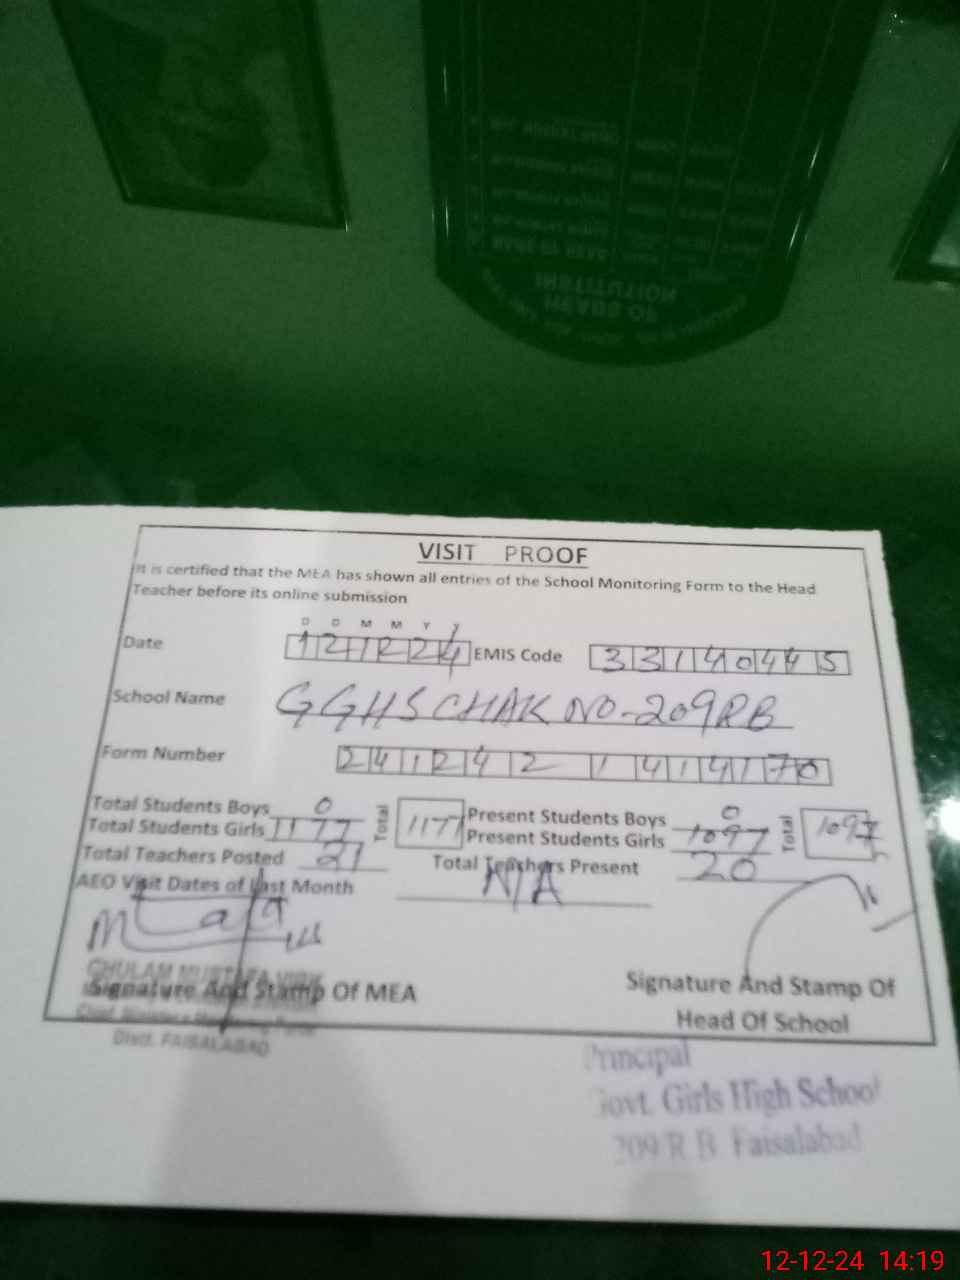 HEADS OF
INSTITUTION
VISIT PROOF
It is certified that the MEA has shown all entries of the School Monitoring Form to the Head
Teacher before its online submission
D D M M Y Y
Date 121224 EMIS Code 33140445
School Name GGHS CHAK NO-209RB
Form Number 241242 1414170
Total Students Boys 0 Total Present Students Boys 0 Total
Total Students Girls 1177 1177 Present Students Girls 1097 1097
Total Teachers Posted 21 Total Teachers Present 20
AEO Visit Dates of Last Month N/A
GHULAM MUSTAFA
Signature And Stamp Of MEA Signature And Stamp Of
Head Of School
Distt. FAISALABAD
Principal
Govt. Girls High School
209 R B Faisalabad
12-12-24 14:19